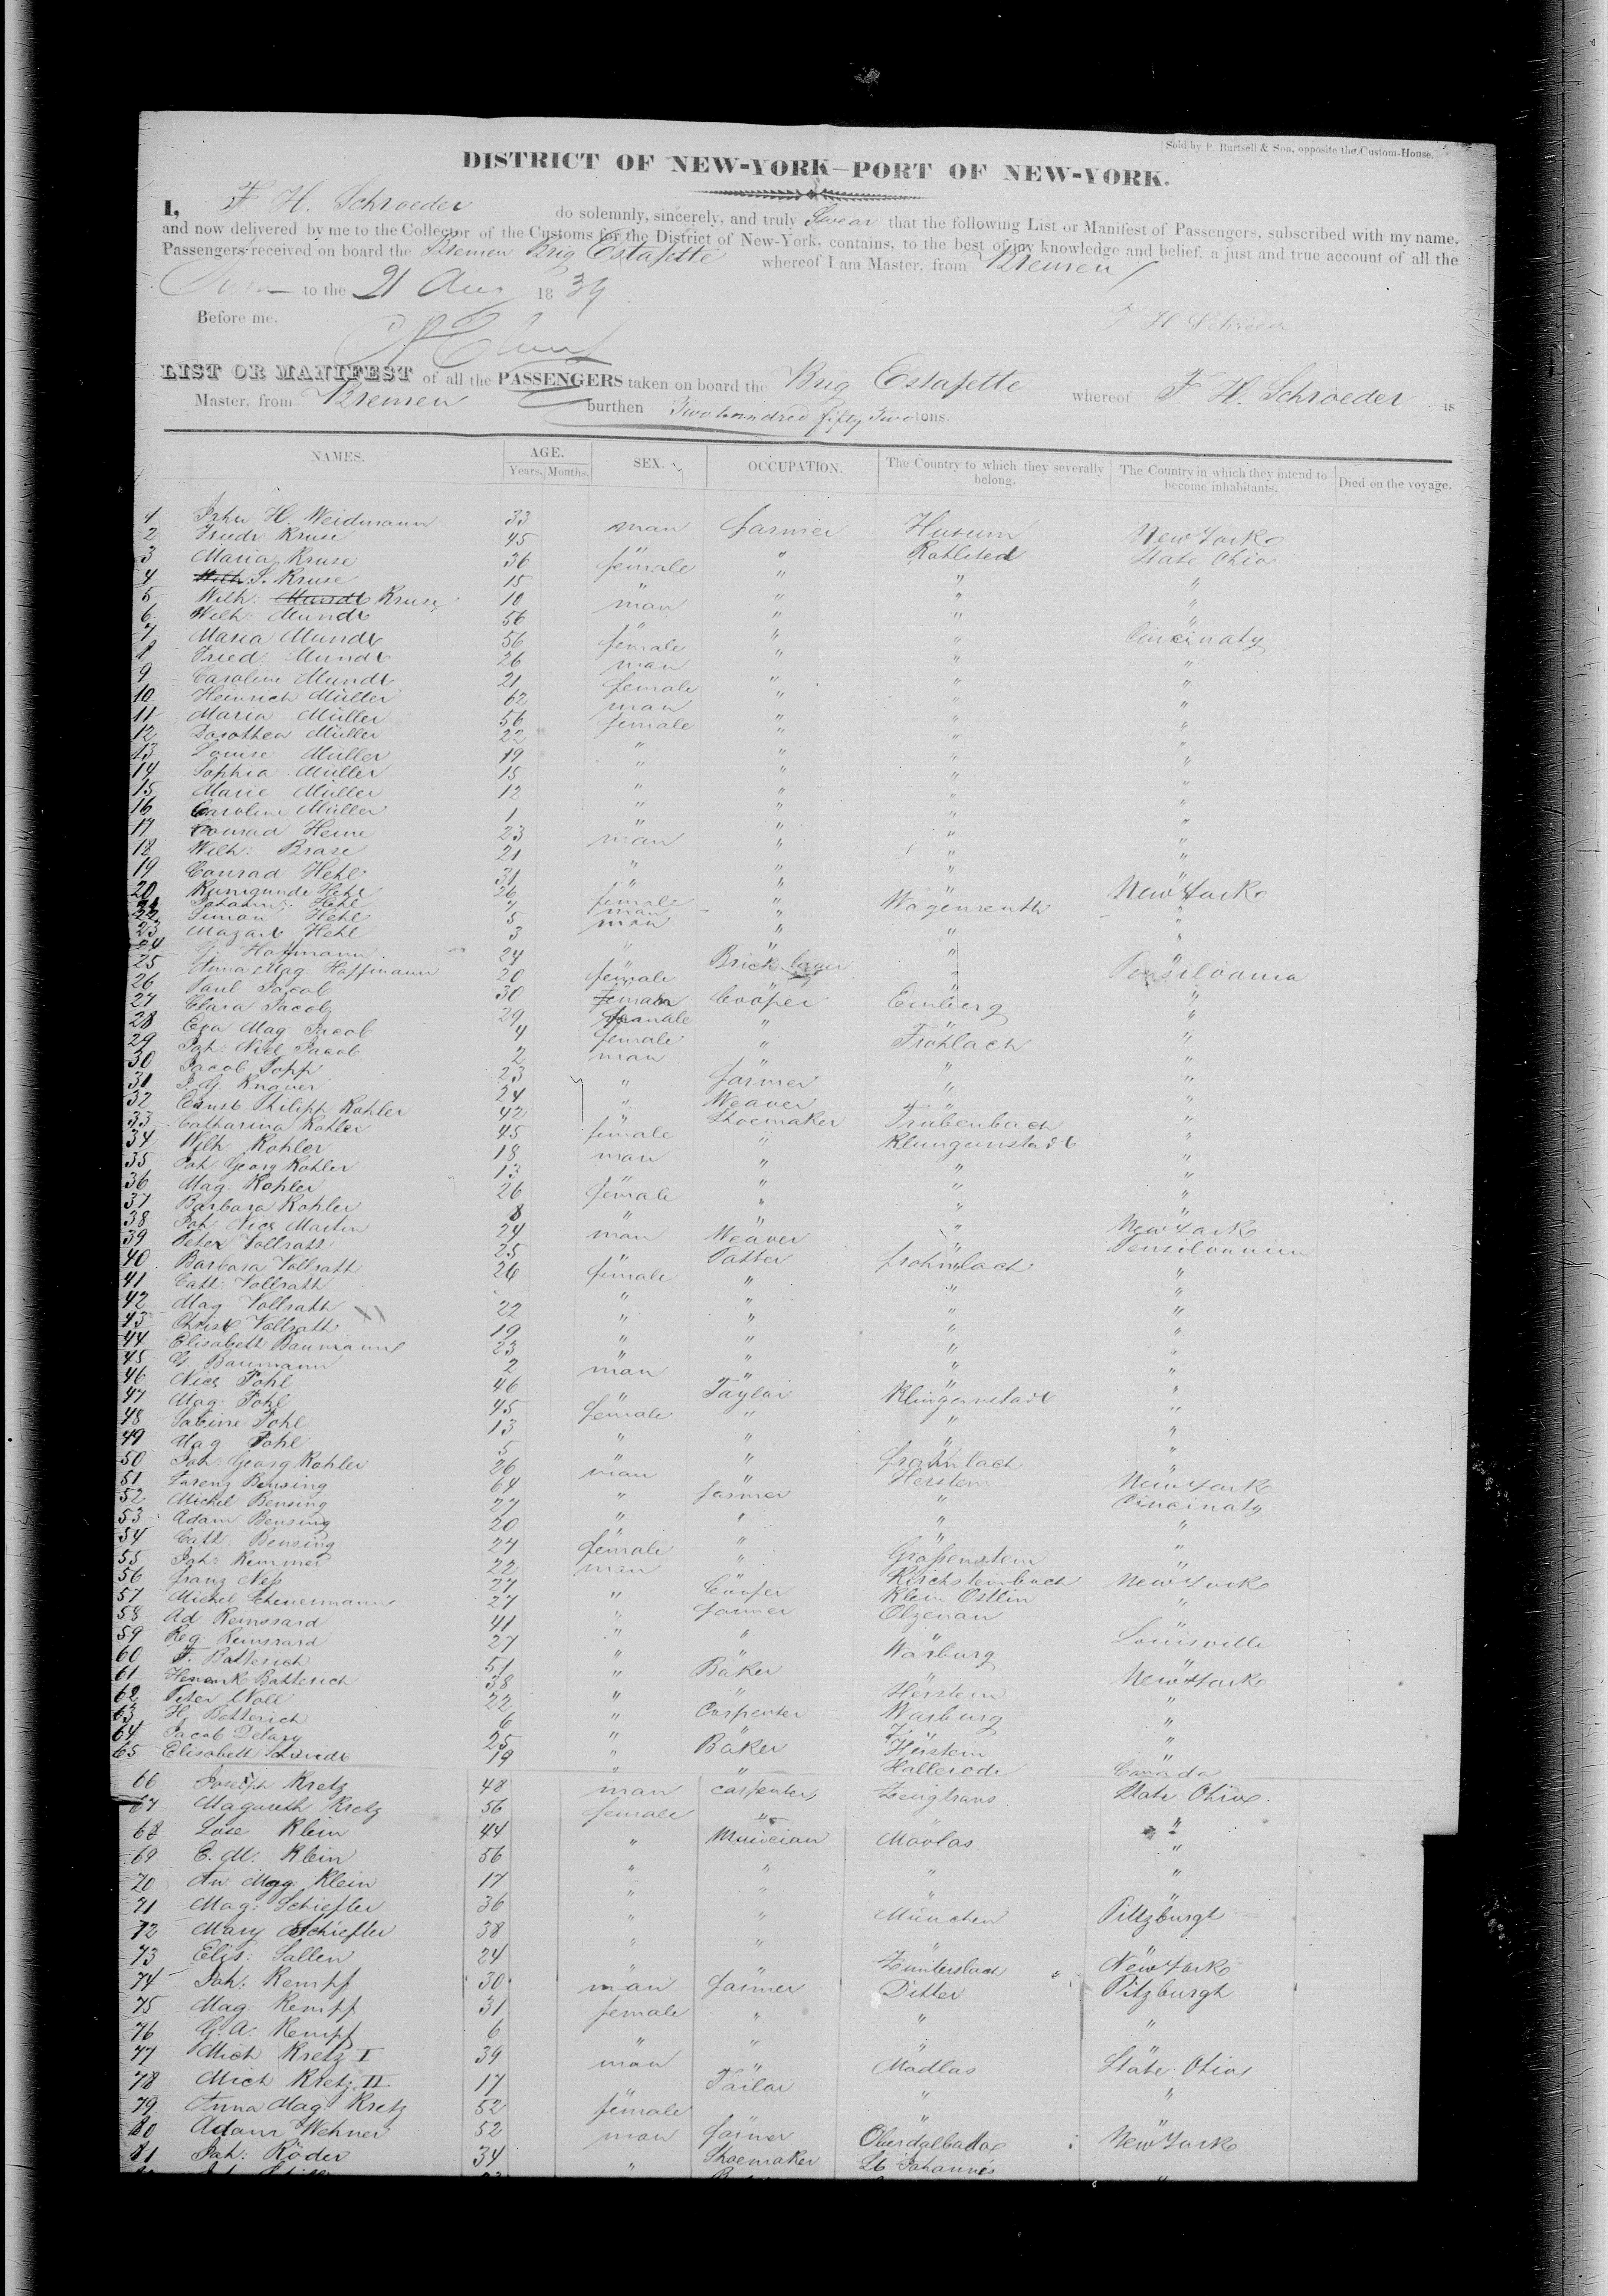 Sold by P. Burtsell & Son, opposite the Custom-House.
DISTRICT OF NEW-YORK—PORT OF NEW-YORK.
I, F H. Schroeder do solemnly, sincerely, and truly Swear that the following List or Manifest of Passengers, subscribed with my name,
and now delivered by me to the Collector of the Customs for the District of New-York, contains, to the best of my knowledge and belief, a just and true account of all the
Passengers received on board the Bremen Brig Estafette whereof I am Master, from Bremen
Sworn to the 21 Aug 1839
Before me. F H Schröder
LIST OR MANIFEST of all the PASSENGERS taken on board the Brig Estafette whereof F. H. Schroeder is
Master, from Bremen burthen Two hundred fifty Two tons.
NAMES. AGE. Years. Months. SEX. OCCUPATION. The Country to which they severally belong. The Country in which they intend to become inhabitants. Died on the voyage.
1 John H. Weidmann 33 man farmer Husum New York
2 Friedr Kruse 45 " " Rohlsted State Ohio
3 Maria Kruse 36 female " " "
4 S. Kruse 15 " " " "
5 Wilh: Kruse 10 man " " "
6 Wilh: Mundt 56 " " " Cincinaty
7 Maria Mundt 56 female " " "
8 Fried: Mundt 26 man " " "
9 Caroline Mundt 21 female " " "
10 Heinrich Müller 62 man " " "
11 Maria Müller 56 female " " "
12 Dorothea Müller 22 " " " "
13 Louise Müller 19 " " " "
14 Sophia Müller 15 " " " "
15 Marie Müller 12 " " " "
16 Caroline Müller 1 " " " "
17 Conrad Heine 23 man " " "
18 Wilh: Brase 21 " " " "
19 Conrad Hehl 31 " " " New York
20 Kunigunde Hehl 26 female " Wagenreuth "
21 Johann: Hehl 7 man " " "
22 Simon Hehl 5 man " " "
23 Mazart Hehl 3 " " "
24 G. Hoffmann 24 " Brick layer " Pensilvania
25 Anna Mag Hoffmann 20 female " " "
26 Paul Jacob 30 man Cooper Einberg "
27 Clara Jacob 29 female " " "
28 Eva Mag Jacob 4 female " Fröhlach "
29 Joh: Nicl Jacob 2 man " " "
30 Jacob Popp 23 " farmer " "
31 J. G. Knauer 24 " Weaver " "
32 Ernst Philipp Kohler 42 " Shoemaker Trübenbach "
33 Catharina Kohler 45 female " Klingenstadt "
34 Wilh Kohler 18 man " " "
35 Joh: Georg Kohler 13 " " " "
36 Mag: Kohler 26 female " " "
37 Barbara Kohler 8 " " " "
38 Joh Nics Martin 24 man Weaver " New York
39 Peter Vollrath 25 " Potter frohnlach Pensilvanien
40 Barbara Vollrath 26 female " " "
41 Cath: Vollrath " " " "
42 Mag Vollrath 22 " " " "
43 Christ Vollrath 19 " " " "
44 Elisabeth Baumann 23 " " " "
45 G Baumann 2 man " " "
46 Nics Pohl 46 " Taylor Klingenstadt "
47 Mag: Pohl 45 female " " "
48 Sabine Pohl 13 " " " "
49 Mag Pohl 5 " " " "
50 Joh: Georg Kohler 26 man " frohnlach "
51 Lorenz Bensing 64 " farmer Herstein New York
52 Michel Bensing 27 " " " Cincinaty
53 Adam Bensing 20 " " " "
54 Cath: Bensing 24 female " " "
55 Joh: Kemmer 22 man " Großenstein "
56 franz Neß 27 " Cooper Kirchsteinbach New York
57 Michel Scheuermann 27 " farmer Klein Ostlin "
58 Ad Remssard 41 " " Olzenau "
59 Reg Remssard 27 " " " Louisville
60 F. Batterich 51 " Baker Warburg "
61 Henerk Batterich 38 " " " New York
62 Peter Noll 22 " Carpenter Herstein "
63 H. Batterich 6 " " Warburg "
64 Jacob Delary 25 " Baker Herstein "
65 Elisabeth Schmidt 19 " " Hallerode Canada
66 Joseph Kretz 48 man carpenter Zeugtrans State Ohio
67 Magareth Kretz 56 female " " "
68 Lose Klein 44 " Musician Madlas "
69 C. M. Klein 56 " " " "
70 An Mag Klein 17 " " " "
71 Mag: Schiefler 36 " " München Pittzburgt
72 Mary Schiefler 38 " " " "
73 Elis: Sallen 24 " " Züntersbach New York
74 Joh: Kempf 30 man farmer Ditter Pitzburgh
75 Mag: Kempf 31 female " " "
76 G. A. Kempf 6 " " " "
77 Mich Kretz I 39 man " Madlas State Ohios
78 Mich Kretz II 17 " Tailor " "
79 Anna Mag Kretz 52 female " " "
80 Adam Wehner 52 man farmer Oberdalbattae New York
81 Joh: Röder 34 " Shoemaker St Johannis